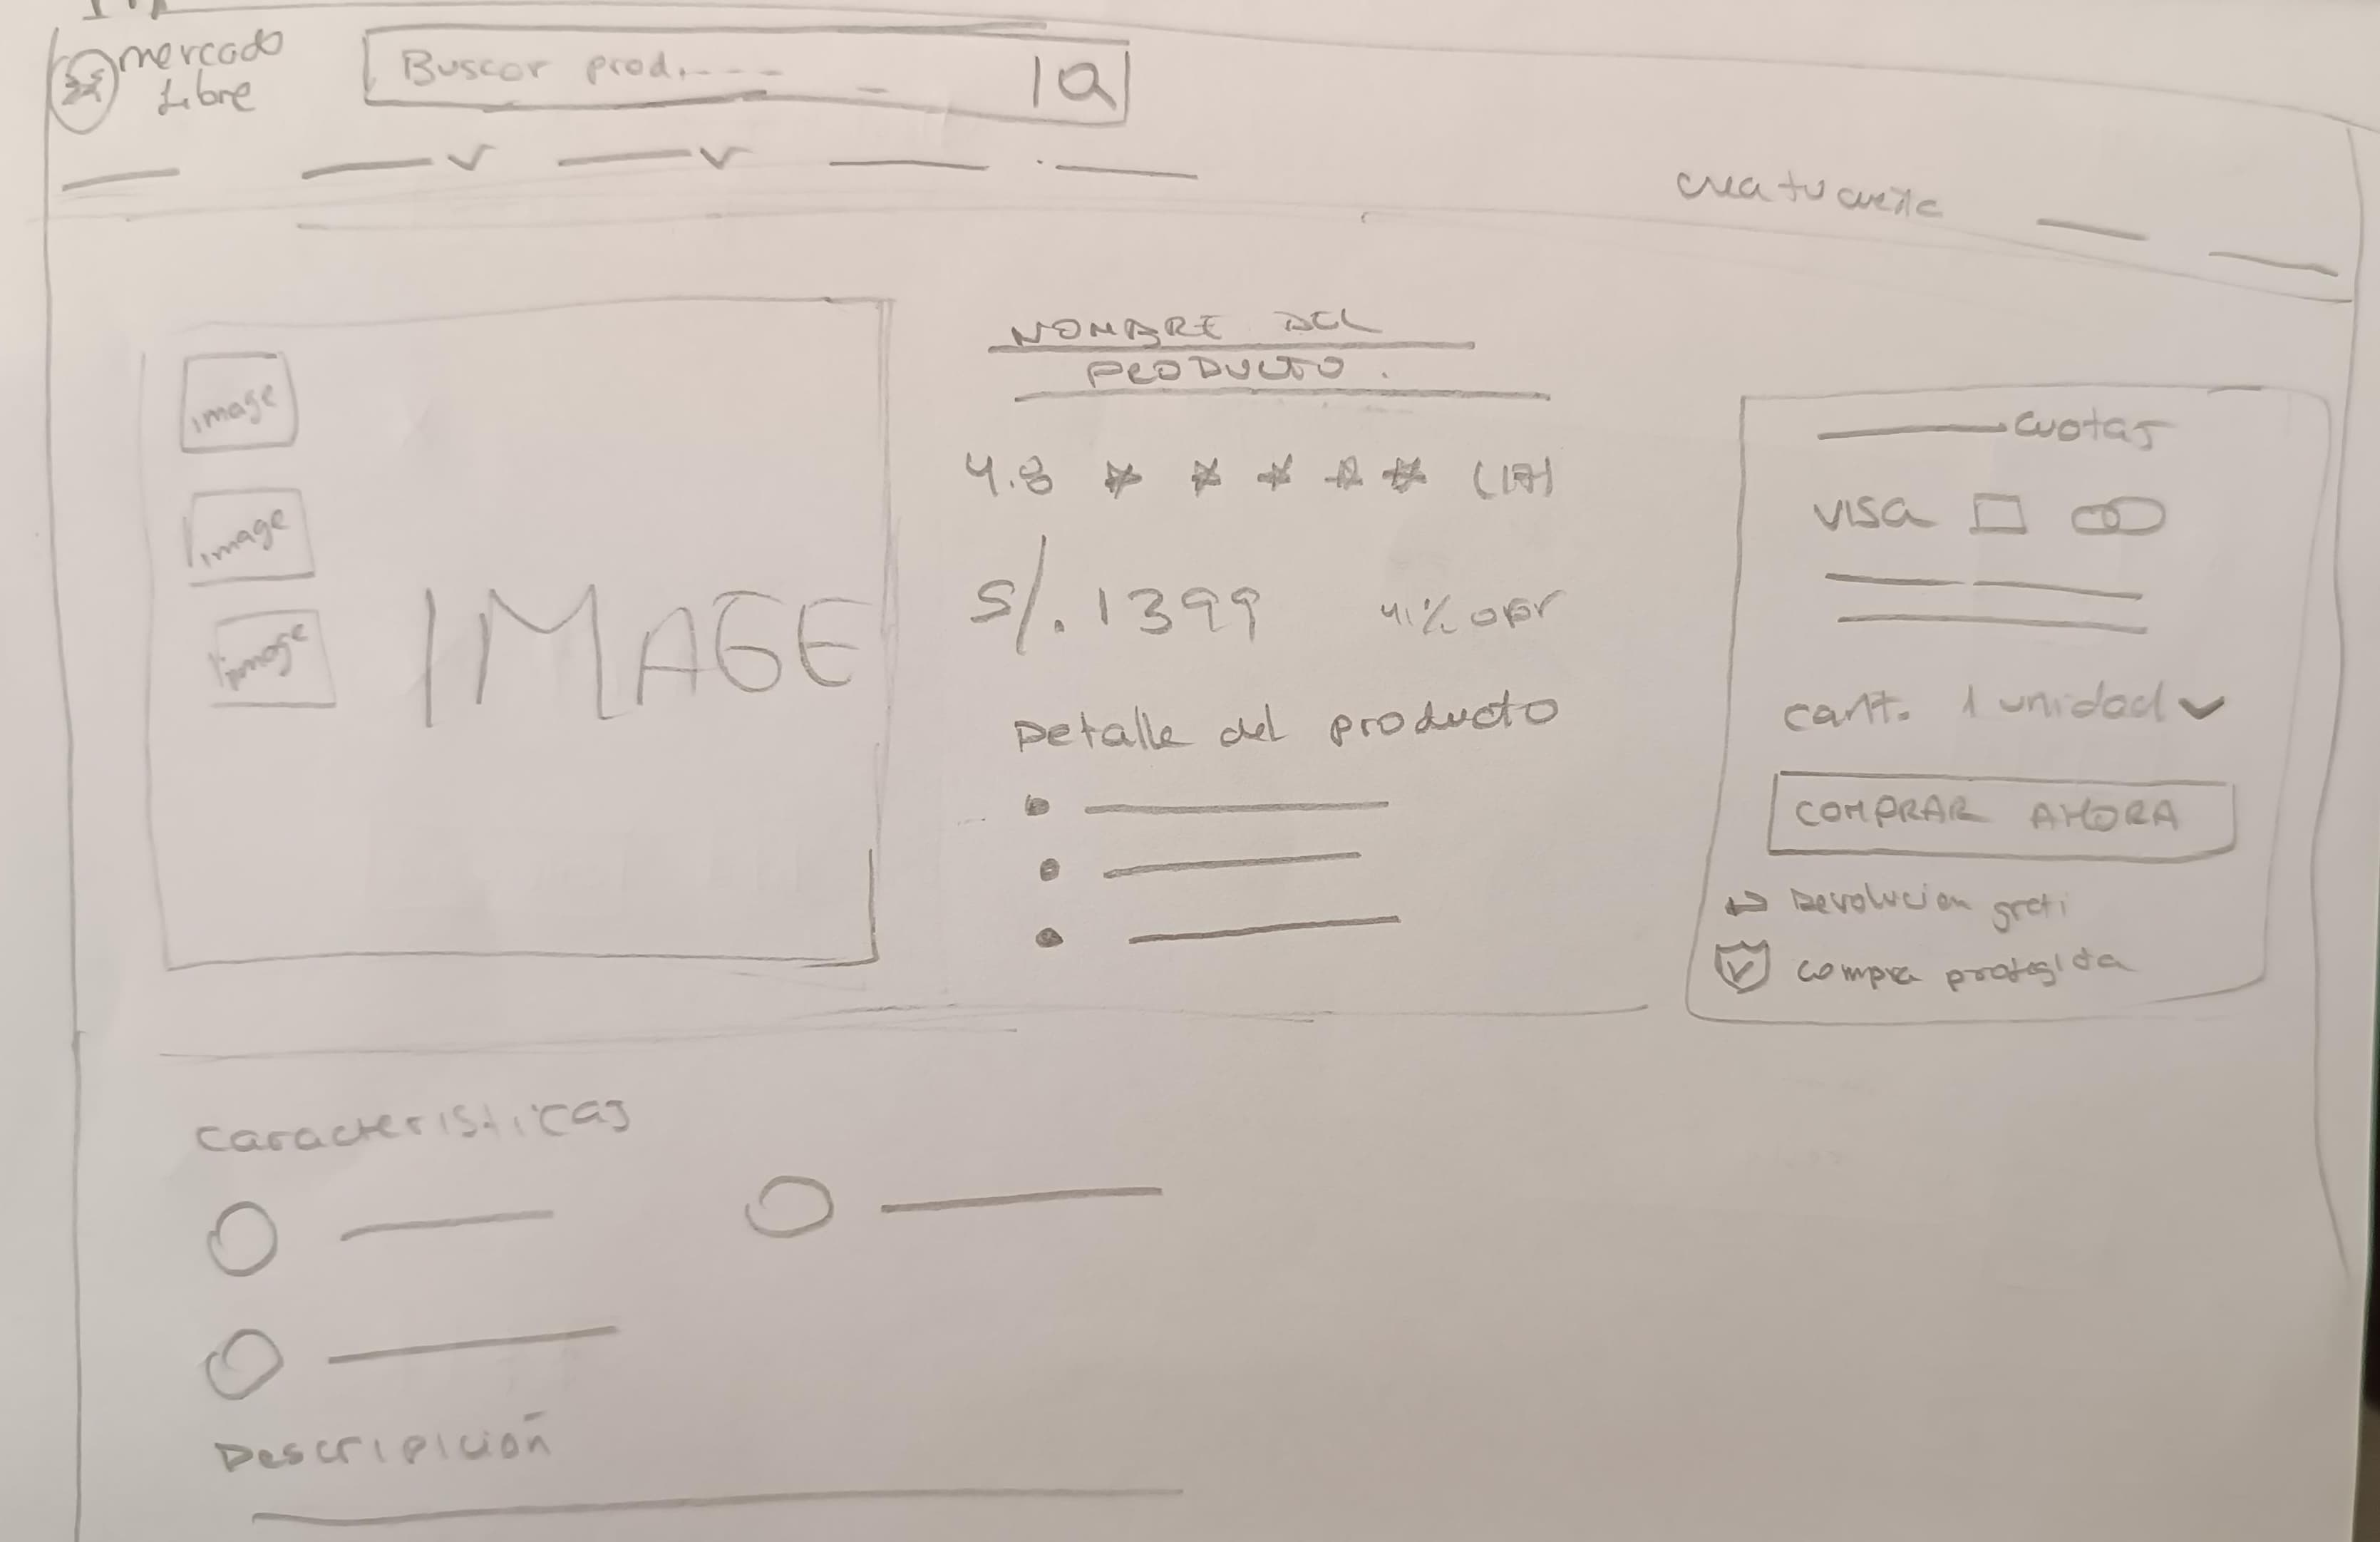 mercado
Libre
Buscar prod.----
crea tu cuenta
NOMBRE DEL
PRODUCTO.
image
image
image
IMAGE
4.8 (17)
S/. 1399 41% OFF
Detalle del producto
cuotas
VISA
cant. 1 unidad
COMPRAR AHORA
Devolucion grati
compra protegida
Caracteristicas
Descripición